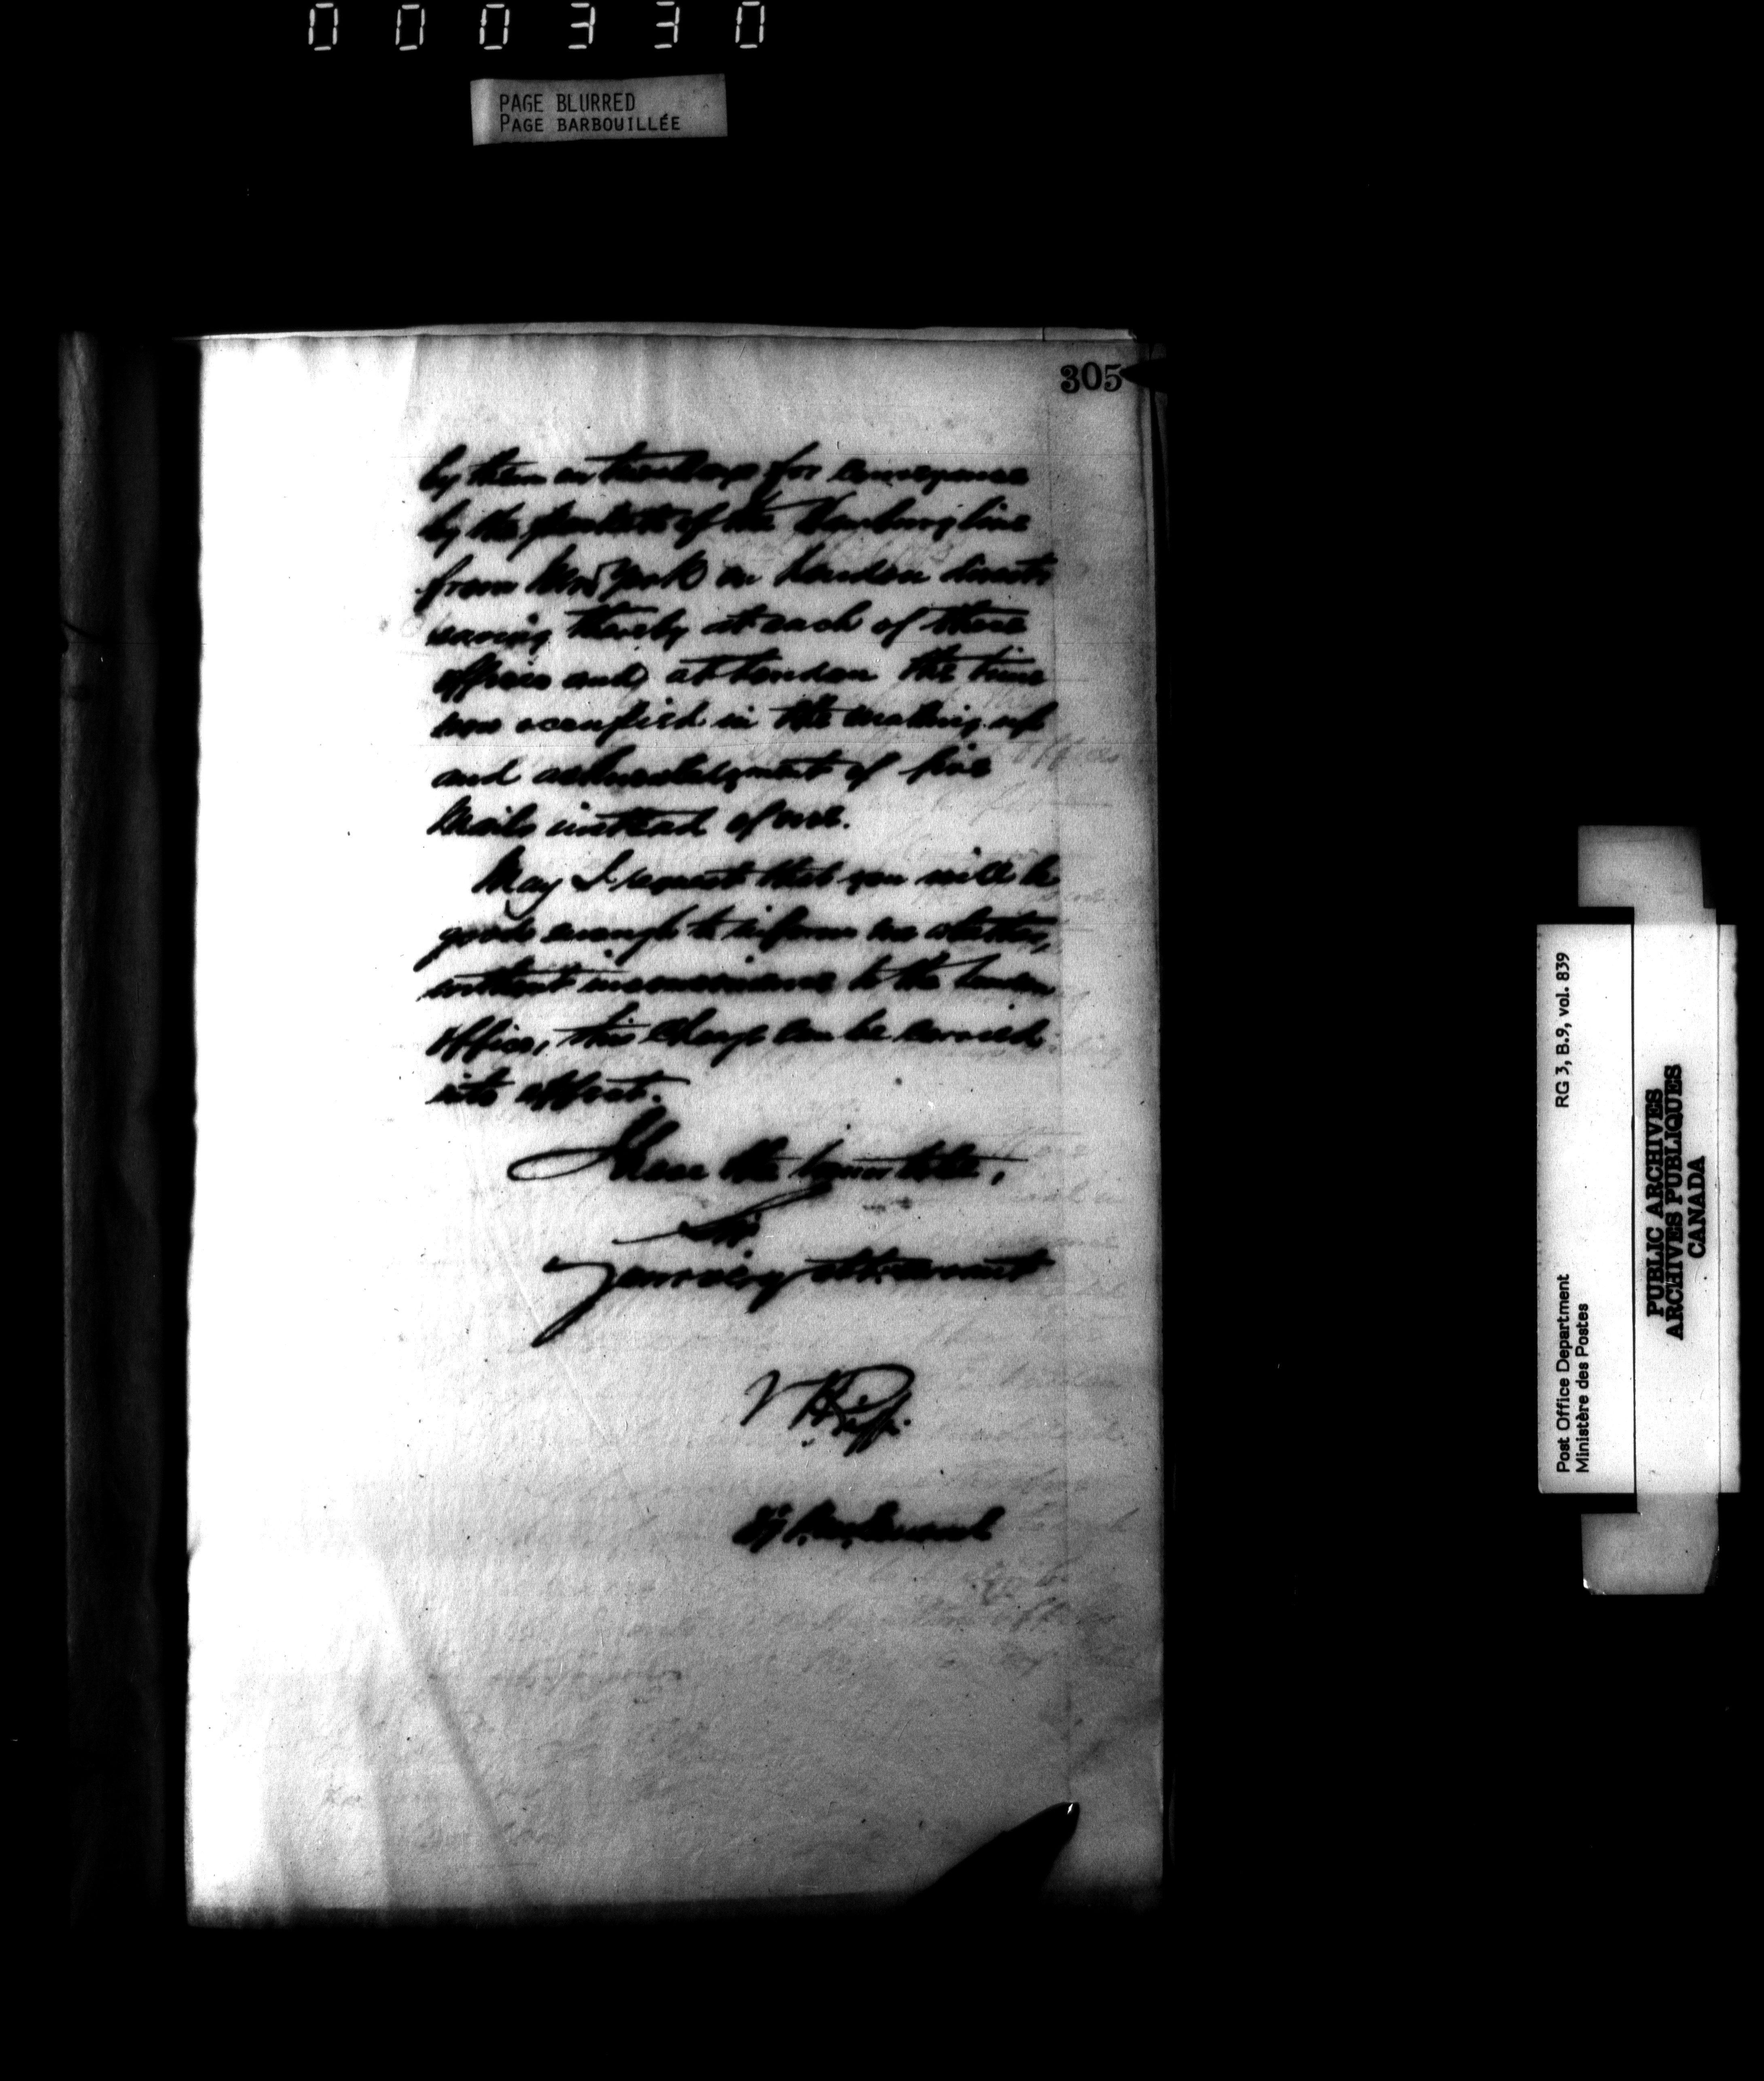 000330
PAGE BLURRED
PAGE BARBOUILLÉE
305
by them on Tuesdays for conveyance
by the packets of the Hamburg line
from New York on London direct
saving thereby at each of these
offices and at London the time
now occupied in the making up
and acknowledgment of five
Mails instead of one.
May I request that you will be
good enough to inform me whether,
without inconvenience to the London
Office, this change can be carried
into effect.
I have the honor to be,
Sir,
Your very obt. servant
RG 3, B.9, vol. 839
Post Office Department
Ministère des Postes
PUBLIC ARCHIVES
ARCHIVES PUBLIQUES
CANADA